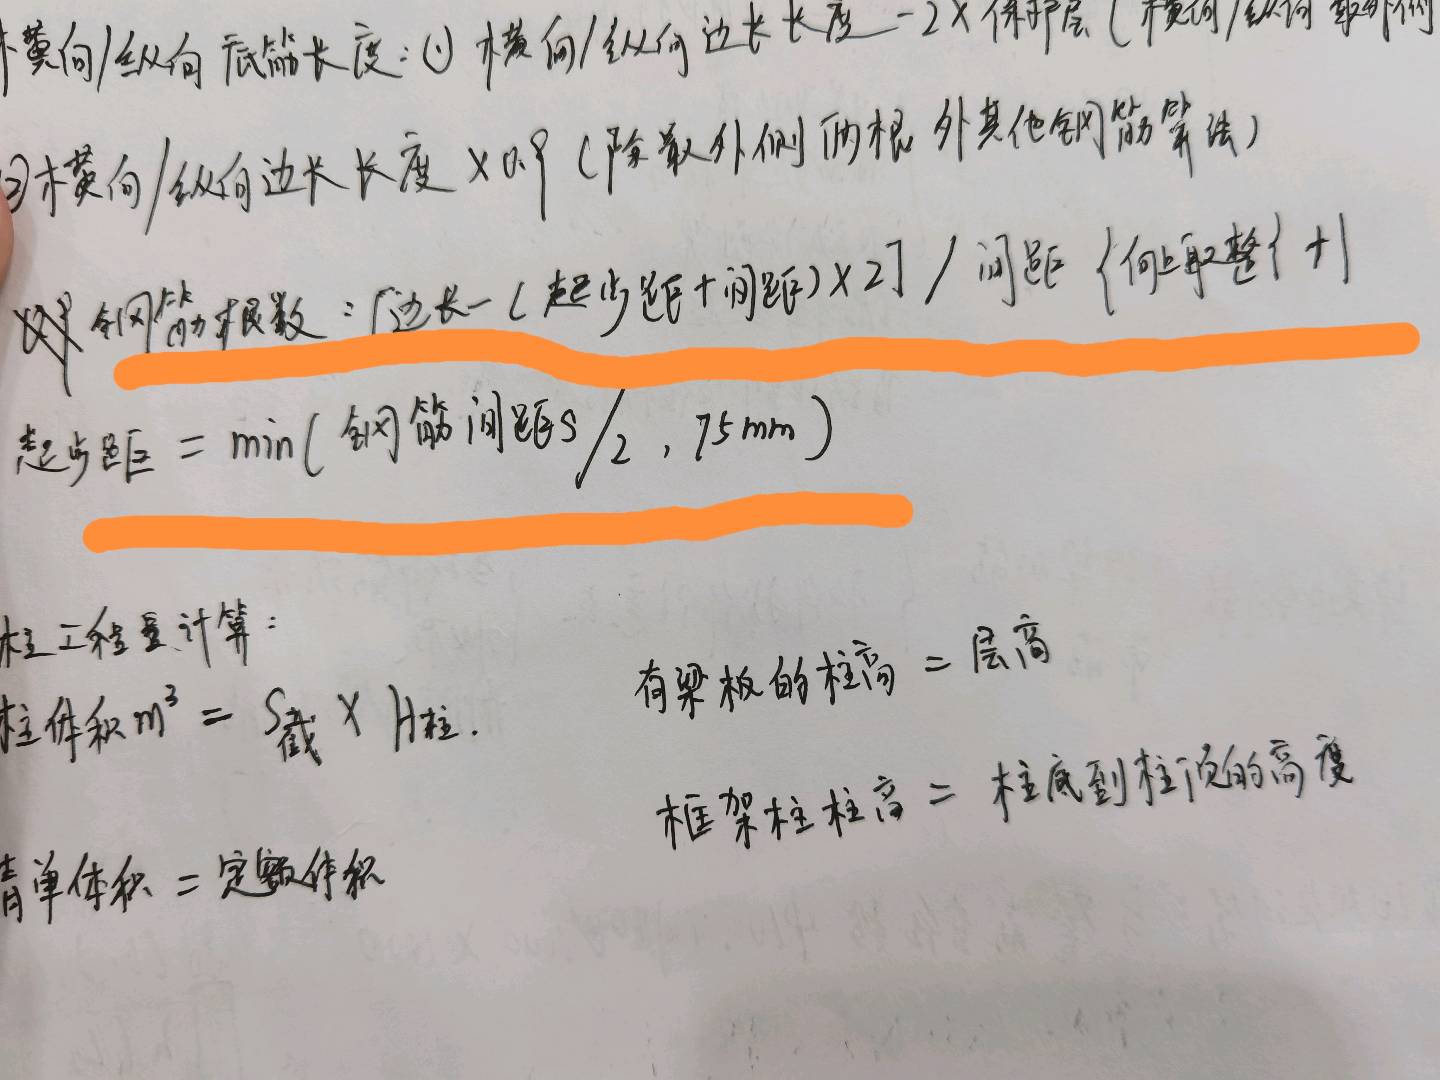 横向/纵向底筋长度:① 横向/纵向边长长度-2×保护层(横向/纵向最外侧
②横向/纵向边长长度×0.9(除最外侧两根外其他钢筋算法)
钢筋根数:[边长-(起步距+间距)×2]/间距{向上取整}+1
起步距=min(钢筋间距S/2,75mm)
柱工程量计算:
柱体积m³=S截×H柱.
有梁板的柱高=层高
框架柱柱高=柱底到柱顶的高度
清单体积=定额体积